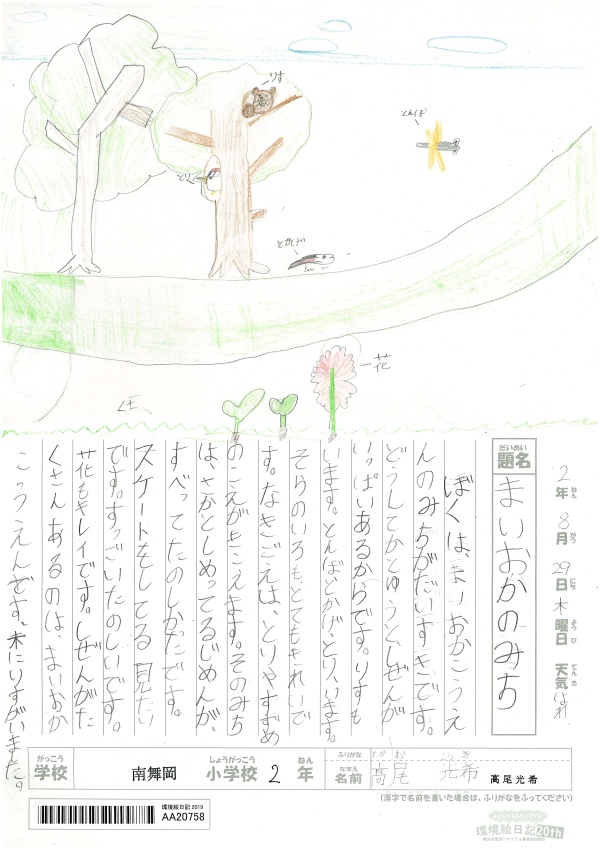 りす
とんぼ
とり
とかげ
花
2年8月29日木曜日 天気はれ
ねん がつ にち ようび てんき
だいめい
題名
まいおかのみち
ぼくは、まいおかこうえ
んのみちがだいすきです。
どうしてかとゆうと、しぜんが
いっぱいあるからです。りすも
います。とんぼとかげ、とり、います。
そらのいろも、とてもきれいで
す。なきごえは、とりやすずめ
のこえがきこえます。そのみち
は、さかとしめってるじめんが、
すべってたのしかたです。
スケートをしてる見たい
です。すっごいたのしいです。
花もキレイです。しぜんがた
くさんあるのは、まいおか
こうえんです。木にりすがいました。
がっこう
学校
南舞岡
しょうがっこう
小学校
2
ねん
年
ふりがな
たか お こうき
なまえ
名前
高尾 光希
高尾光希
(漢字で名前を書いた場合は、ふりがなをふってください)
環境絵日記2019
AA20758
環境絵日記20th